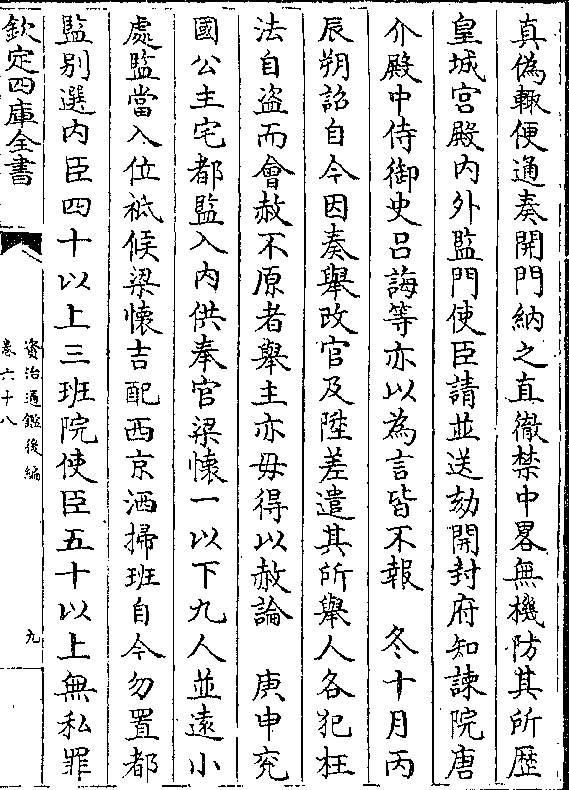 真偽輙便通奏開門納之直徹禁中畧無機防其所歴
皇城宫殿内外監門使臣請並送劾開封府知諫院唐
介殿中侍御史吕誨等亦以為言皆不報　冬十月丙
辰朔詔自今因奏舉改官及陞差遣其所舉人各犯枉
法自盗而會赦不原者舉主亦毋得以赦論　庚申兖
國公主宅都監入内供奉官梁懷一以下九人並逺小
處監當入位祗候梁懷吉配西京洒掃班自今勿置都
監别選内臣四十以上三班院使臣五十以上無私罪
欽定四庫全書
資治通鑑後編
卷六十八
九